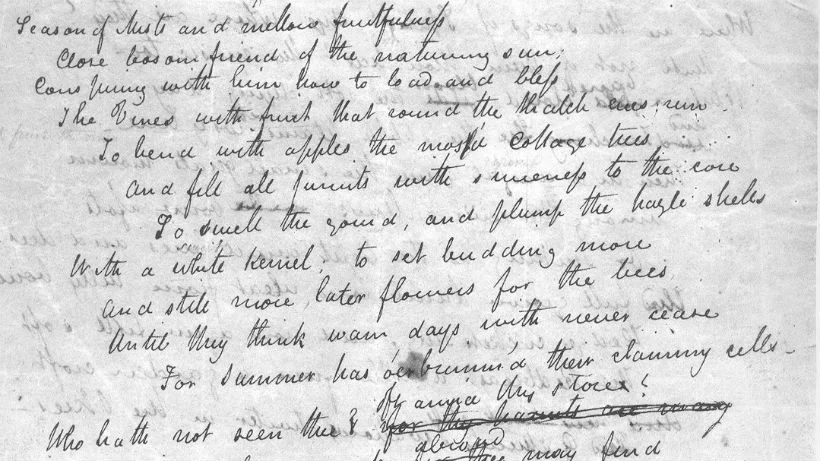 Season of Mists and mellow fruitfulness
Close bosom friend of the naturring sun;
Conspiring with him how to load and bless
The Vines with fruit that round the thatch eves run
To bend with apples the moss'd Cottage trees
And fill all furuits with sweeness to the core
To swell the gourd, and plump the hazle shells
With a white kernel; to set budding more
And still more later flowers for the bees
Until they think wam days with never cease
For Summer has o'erbrimm'd their clammy cells –
oft amid thy stores?
Who hath not seen thee? for thy haunts are many
abroad
thee may find